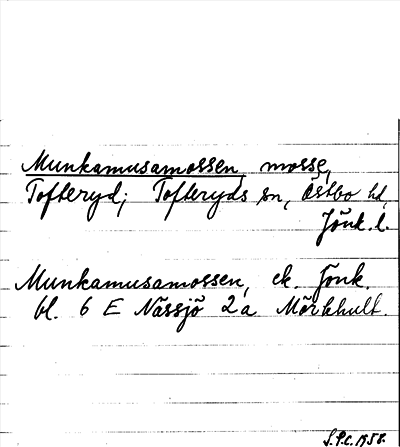 Munkamusamossen, mosse,
Tofteryd; Tofteryds sn, Östbo hd,
Jönk. l.
Munkamusamossen, ek. Jönk.
bl. 6 E Nässjö 2a Mörkhult.
S.P.C. 1958.